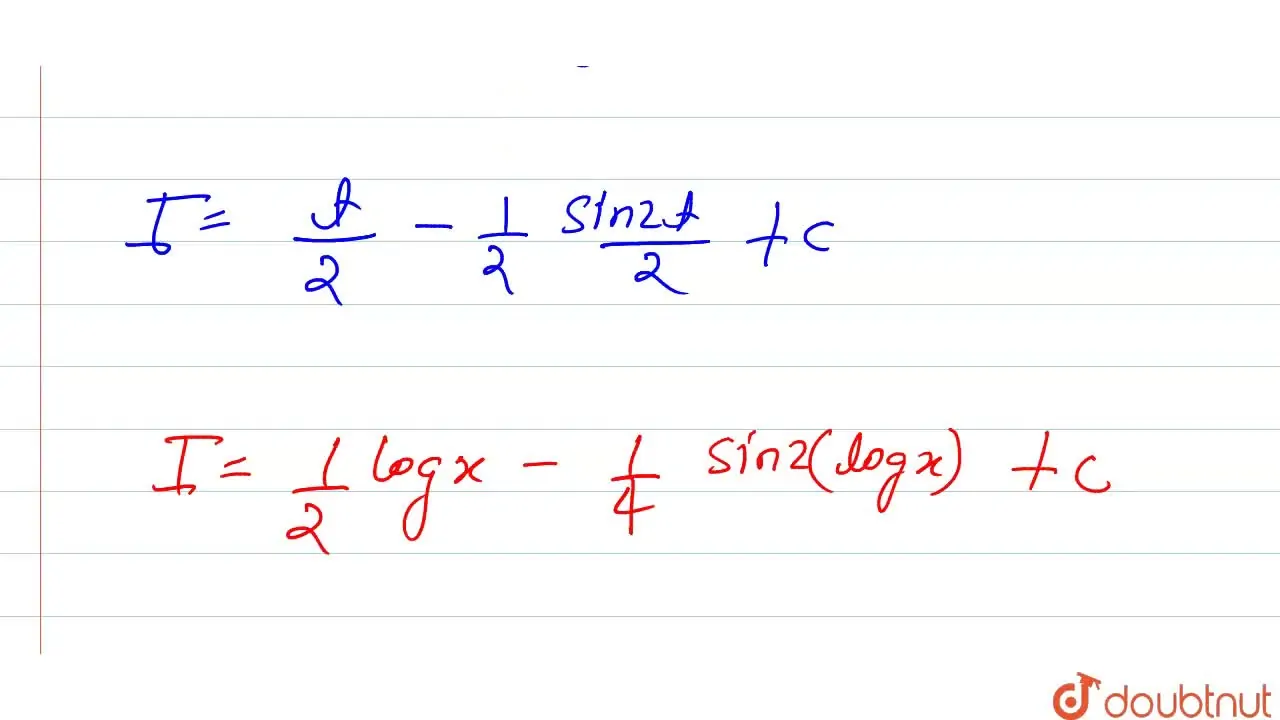 I = t/2 - 1/2 sin2t/2 + c
I = 1/2 logx - 1/4 sin2(logx) + c
doubtnut